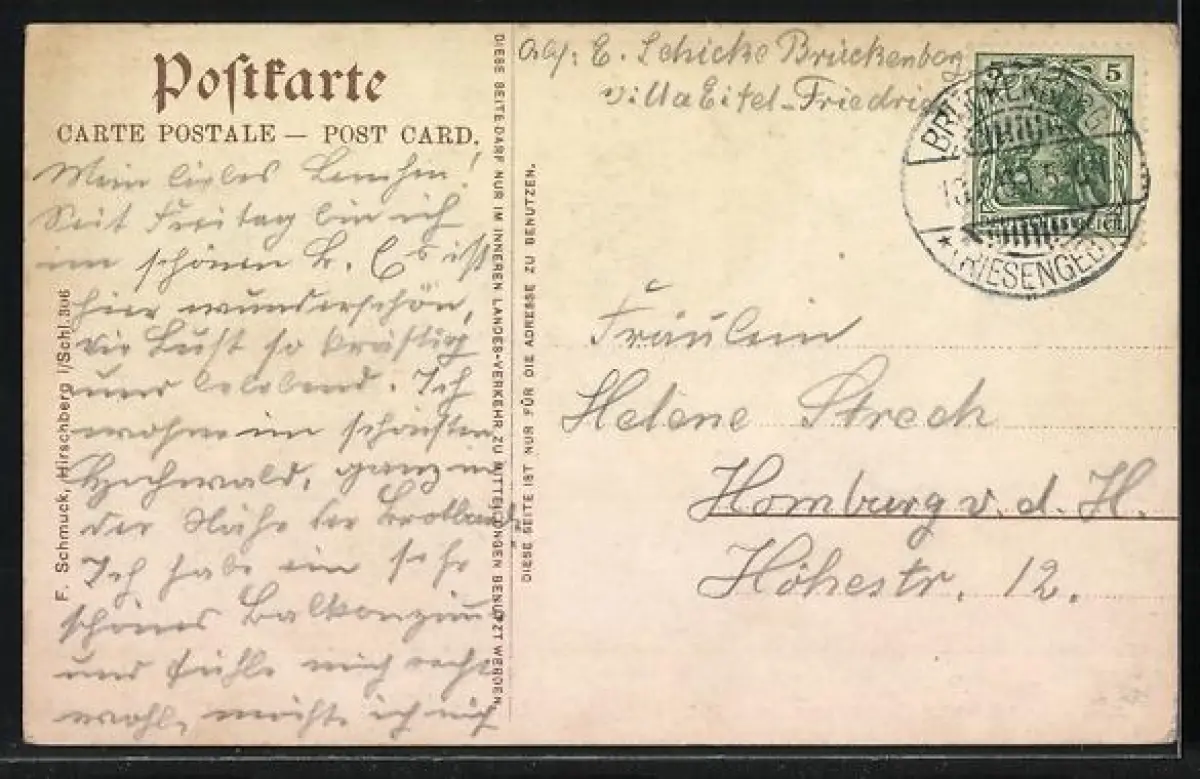 Postkarte
CARTE POSTALE — POST CARD.
Mein liebes Lenchen!
Seit Freitag bin ich
im schönen B. Es ist
hier wunderschön,
die Luft so kräftig
und belebend. Ich
wohne im schönsten
Hochwald, ganz in
der Nähe der
Ich habe ein sehr
schönes Balkonzimmer
und fühle mich recht
wohl, möchte ich
F. Schmuck, Hirschberg i/Schl. 306
DIESE SEITE DARF NUR IM INNEREN LANDES-VERKEHR ZU MITTEILUNGEN BENUTZT WERDEN.
DIESE SEITE IST NUR FÜR DIE ADRESSE ZU BENUTZEN.
Abs: E. Schicke Brückenberg
Villa Eitel-Friedrich
5 5
DEUTSCHES REICH
BRÜCKENBERG
* (RIESENGEB.)
Fräulein
Helene Strech
Homburg v. d. H.
Höhestr. 12.